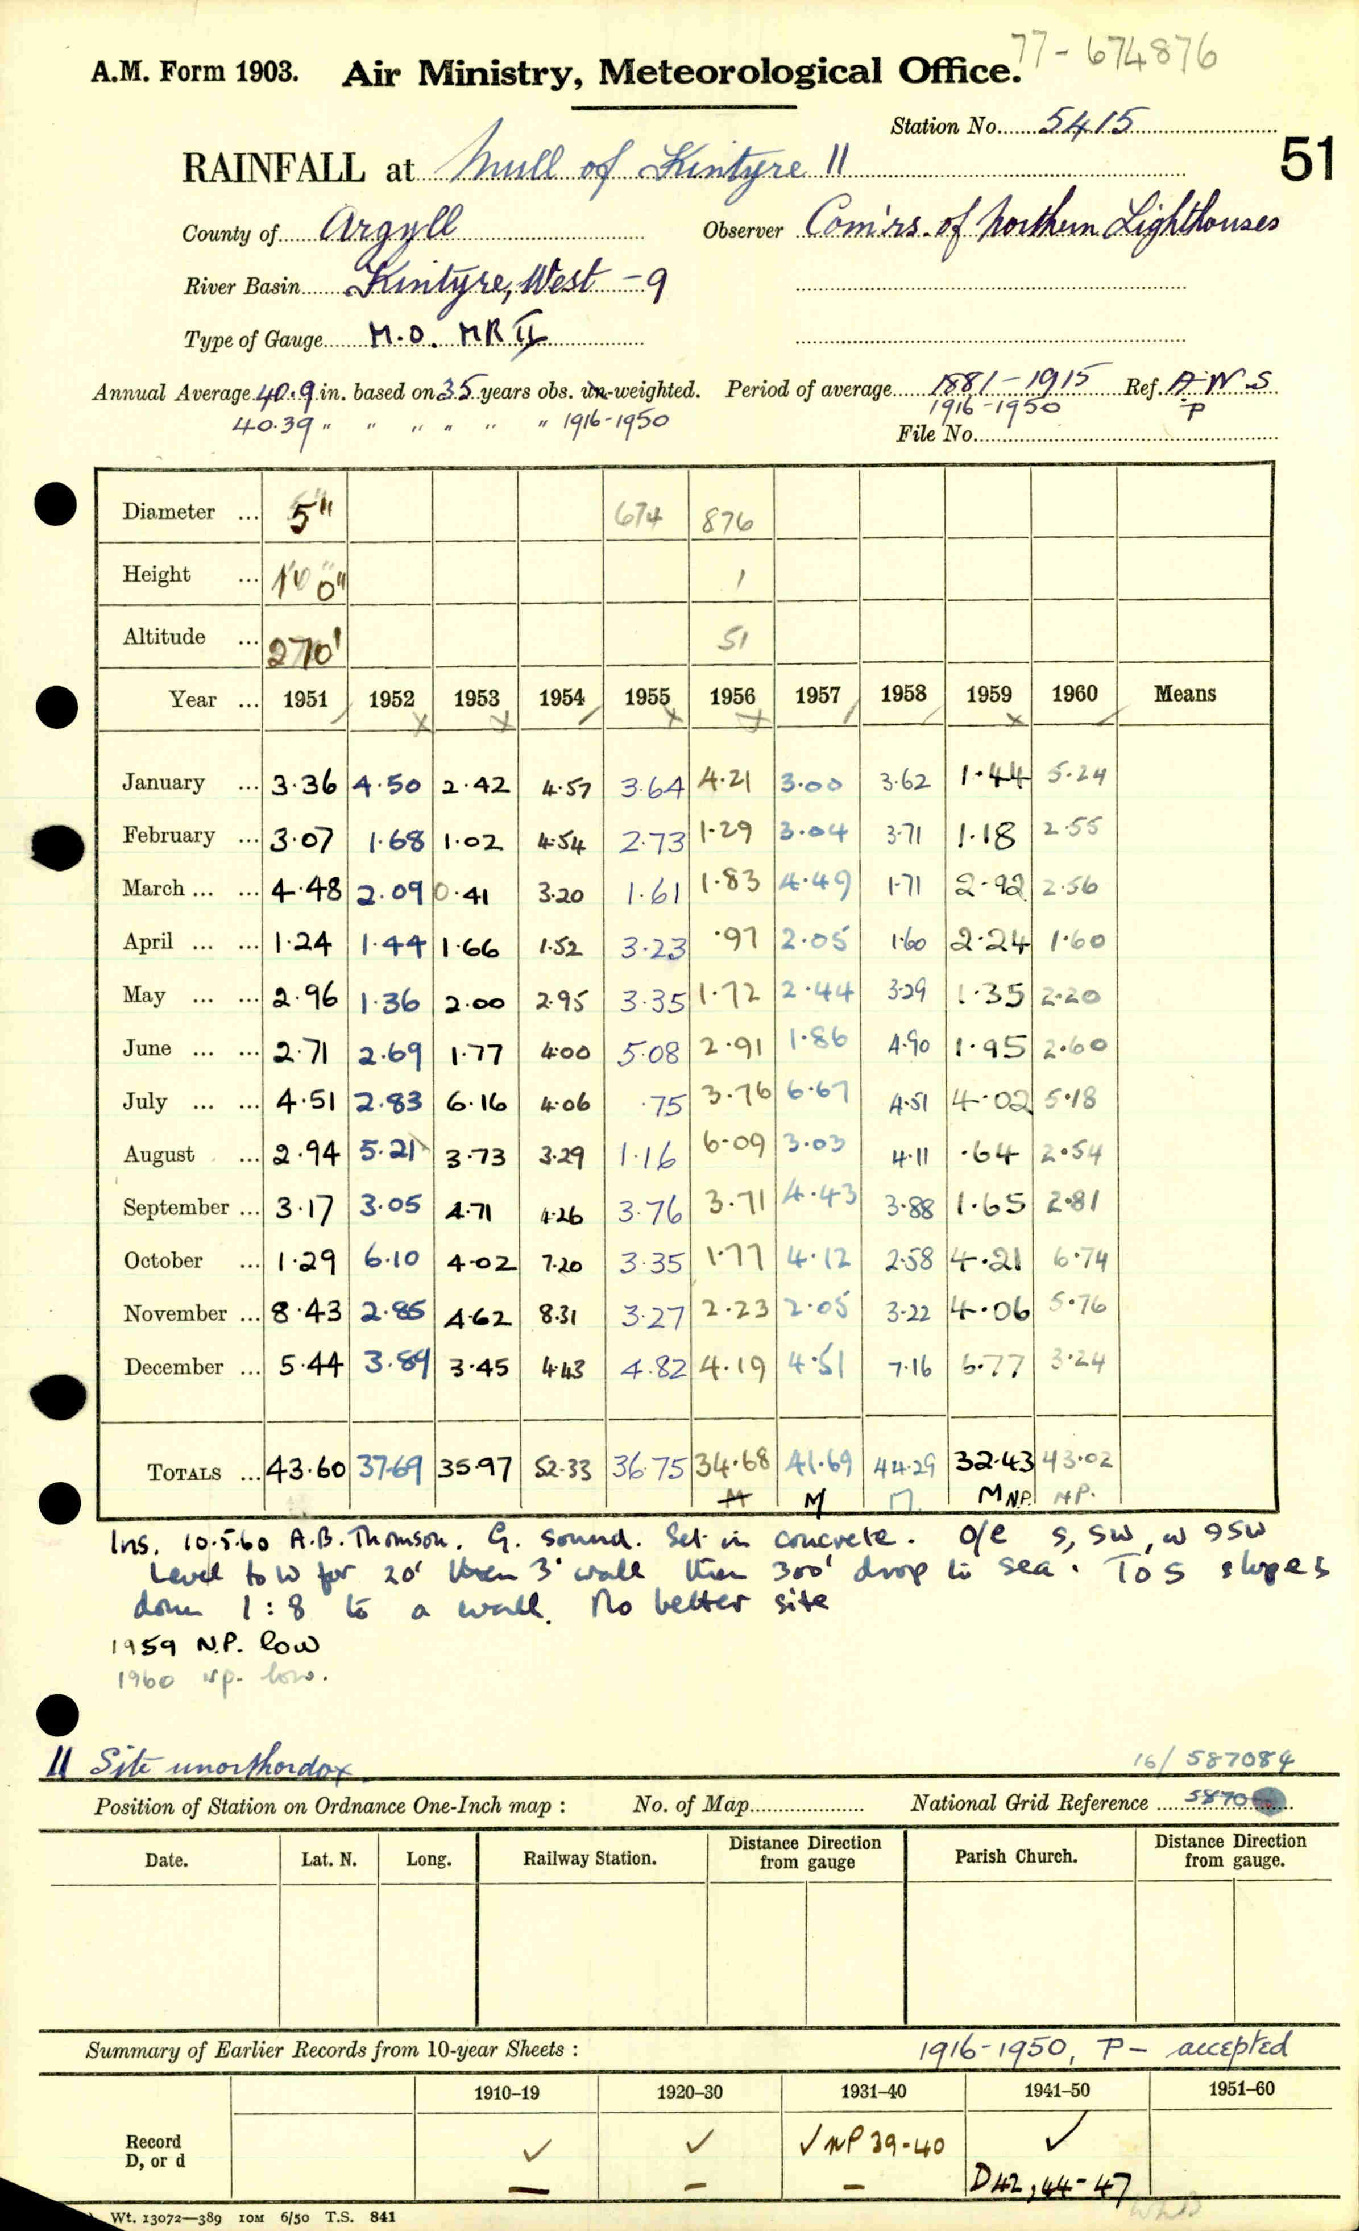 77-674876
A.M. Form 1903. Air Ministry, Meteorological Office.
Station No. 5415
51
RAINFALL at Mull of Kintyre II
County of Argyll Observer Com'rs. of Northern Lighthouses
River Basin Kintyre, West - 9
Type of Gauge M.O. MK II
Annual Average 40.9 in. based on 35 years obs. un-weighted. Period of average 1881-1915 Ref. A.W.S
40.39 " " " " " " 1916-1950 1916-1950 P
File No.
Diameter ... 5" 674 876
Height ... 1' 0" 1
Altitude ... 270' 51
Year ... 1951 / 1952 x 1953 x 1954 / 1955 x 1956 x 1957 / 1958 / 1959 x 1960 / Means
January ... 3.36 4.50 2.42 4.57 3.64 4.21 3.00 3.62 1.44 5.24
February ... 3.07 1.68 1.02 4.54 2.73 1.29 3.04 3.71 1.18 2.55
March ... ... 4.48 2.09 0.41 3.20 1.61 1.83 4.49 1.71 2.92 2.56
April ... ... 1.24 1.44 1.66 1.52 3.23 .97 2.05 1.60 2.24 1.60
May ... ... 2.96 1.36 2.00 2.95 3.35 1.72 2.44 3.29 1.35 2.20
June ... ... 2.71 2.69 1.77 4.00 5.08 2.91 1.86 4.90 1.95 2.60
July ... ... 4.51 2.83 6.16 4.06 .75 3.76 6.67 4.51 4.02 5.18
August ... 2.94 5.21 3.73 3.29 1.16 6.09 3.03 4.11 .64 2.54
September ... 3.17 3.05 4.71 4.26 3.76 3.71 4.43 3.88 1.65 2.81
October ... 1.29 6.10 4.02 7.20 3.35 1.77 4.12 2.58 4.21 6.74
November ... 8.43 2.85 4.62 8.31 3.27 2.23 2.05 3.22 4.06 5.76
December ... 5.44 3.89 3.45 4.43 4.82 4.19 4.51 7.16 6.77 3.24
TOTALS ... 43.60 37.69 35.97 52.33 36.75 34.68 41.69 44.29 32.43 43.02
M M M M N.P. N.P.
Ins. 10.5.60 A.B. Thomson. G. sound. Set in concrete. O/e S, SW, W SSW
Level to W for 20' then 3' wall then 300' drop to sea. To S slopes
down 1:8 to a wall. No better site
1959 N.P. low
1960 N.P. low.
II Site unorthordox 16/587084
Position of Station on Ordnance One-Inch map : No. of Map National Grid Reference 5870
Date. Lat. N. Long. Railway Station. Distance Direction from gauge Parish Church. Distance Direction from gauge.
Summary of Earlier Records from 10-year Sheets : 1916-1950, P - accepted
1910-19 1920-30 1931-40 1941-50 1951-60
Record ✓ ✓ ✓ NP 39-40 ✓
D, or d — — — D42, 44-47
Wt. 13072—389 10M 6/50 T.S. 841